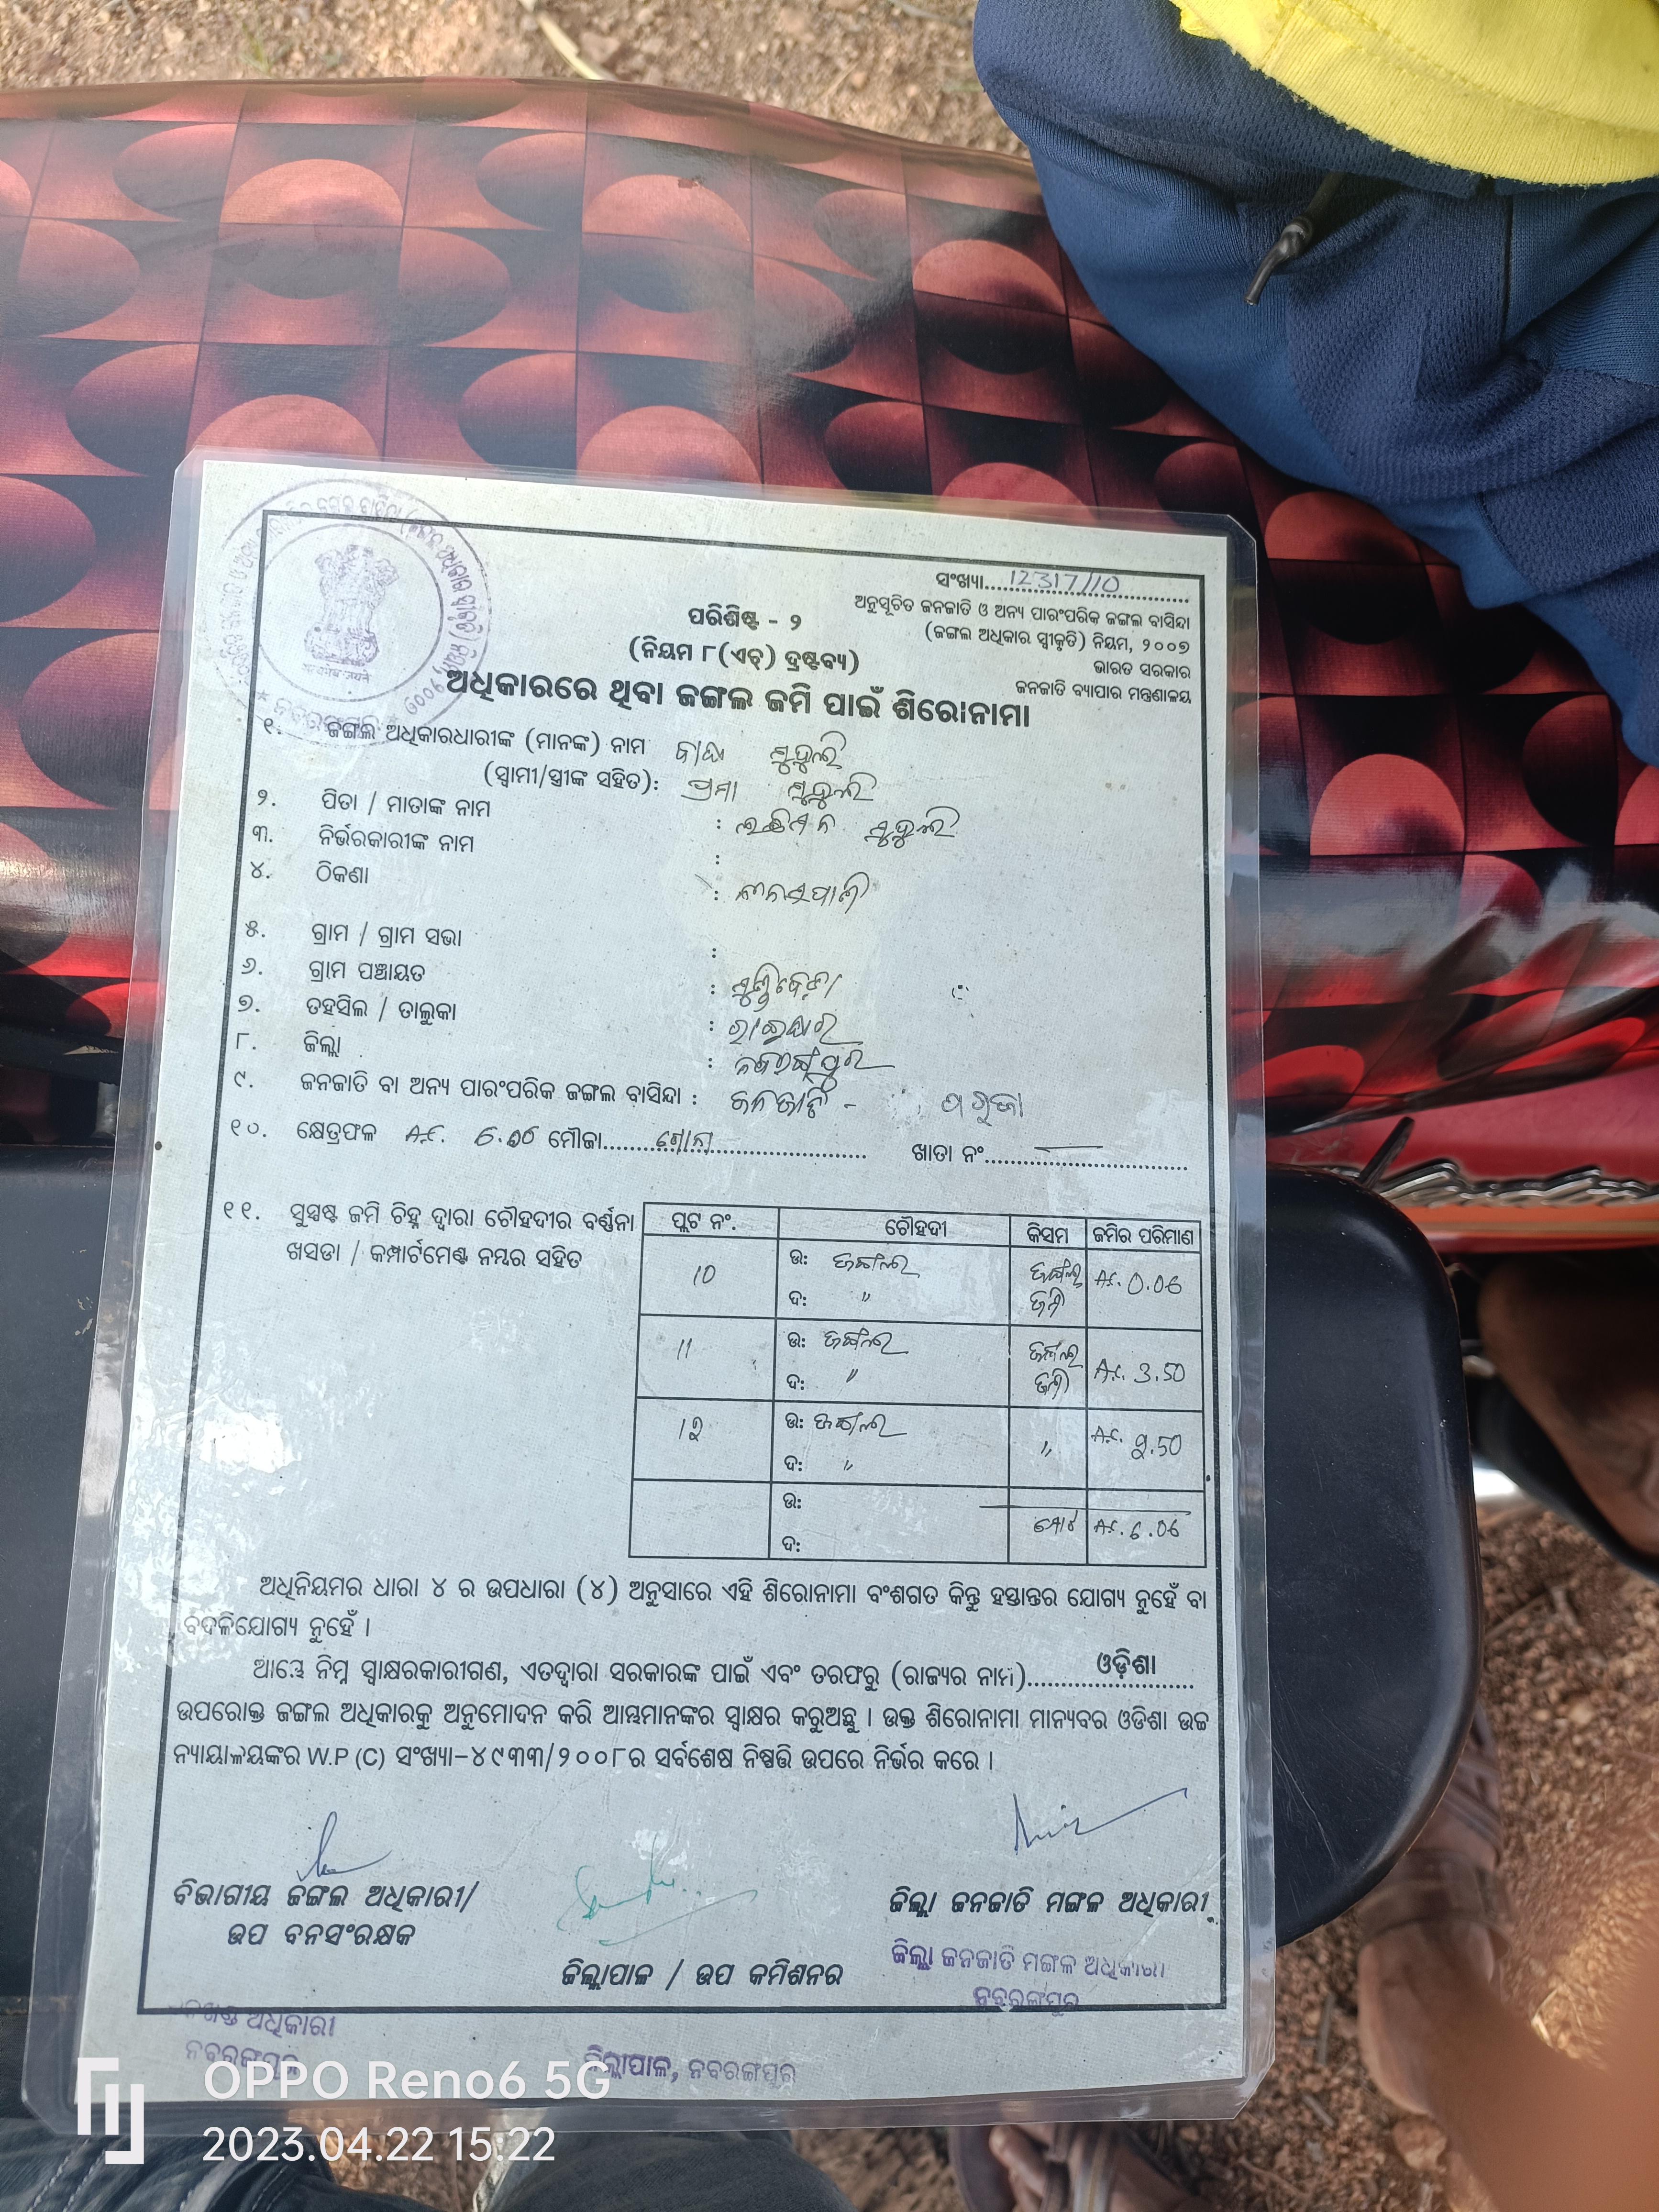 ସଂଖ୍ୟା....12317/10
ଅନୁସୂଚିତ ଜନଜାତି ଓ ଅନ୍ୟ ପାରଂପରିକ ଜଙ୍ଗଲ ବାସିନ୍ଦା
(ଜଙ୍ଗଲ ଅଧିକାର ସ୍ୱୀକୃତି) ନିୟମ, ୨୦୦୭
ଭାରତ ସରକାର
ଜନଜାତି ବ୍ୟାପାର ମନ୍ତ୍ରଣାଳୟ
ପରିଶିଷ୍ଟ - ୨
(ନିୟମ ୮(ଏଚ୍) ଦ୍ରଷ୍ଟବ୍ୟ)
ଅଧିକାରରେ ଥିବା ଜଙ୍ଗଲ ଜମି ପାଇଁ ଶିରୋନାମା
୧. ଜଙ୍ଗଲ ଅଧିକାରଧାରୀଙ୍କ (ମାନଙ୍କ) ନାମ
(ସ୍ୱାମୀ/ସ୍ତ୍ରୀଙ୍କ ସହିତ):
୨. ପିତା / ମାତାଙ୍କ ନାମ :
୩. ନିର୍ଭରକାରୀଙ୍କ ନାମ :
୪. ଠିକଣା :
୫. ଗ୍ରାମ / ଗ୍ରାମ ସଭା :
୬. ଗ୍ରାମ ପଞ୍ଚାୟତ :
୭. ତହସିଲ / ତାଲୁକା : ରାଇଘର
୮. ଜିଲ୍ଲା : ନବରଙ୍ଗପୁର
୯. ଜନଜାତି ବା ଅନ୍ୟ ପାରଂପରିକ ଜଙ୍ଗଲ ବାସିନ୍ଦା : ଜନଜାତି -
୧୦. କ୍ଷେତ୍ରଫଳ Ac. 6.06 ମୌଜା............ ଖାତା ନଂ............
୧୧. ସୁସ୍ପଷ୍ଟ ଜମି ଚିହ୍ନ ଦ୍ୱାରା ଚୌହଦୀର ବର୍ଣ୍ଣନା
ଖସଡା / କମ୍ପାର୍ଟମେଣ୍ଟ ନମ୍ବର ସହିତ
ପ୍ଲଟ ନଂ. ଚୌହଦୀ କିସମ ଜମିର ପରିମାଣ
10 ଉ: ଜଙ୍ଗଲ ଜଙ୍ଗଲ Ac. 0.06
ଦ: " ଜମି
11 ଉ: ଜଙ୍ଗଲ ଜଙ୍ଗଲ Ac. 3.50
ଦ: " ଜମି
1୨ ଉ: ଜଙ୍ଗଲ " Ac. ୨.50
ଦ: "
ଉ: ମୋଟ Ac. 6.06
ଦ:
ଅଧିନିୟମର ଧାରା ୪ ର ଉପଧାରା (୪) ଅନୁସାରେ ଏହି ଶିରୋନାମା ବଂଶଗତ କିନ୍ତୁ ହସ୍ତାନ୍ତର ଯୋଗ୍ୟ ନୁହେଁ ବା
ବଦଳିଯୋଗ୍ୟ ନୁହେଁ ।
ଆମ୍ଭେ ନିମ୍ନ ସ୍ୱାକ୍ଷରକାରୀଗଣ, ଏତଦ୍ୱାରା ସରକାରଙ୍କ ପାଇଁ ଏବଂ ତରଫରୁ (ରାଜ୍ୟର ନାମ)....ଓଡ଼ିଶା....
ଉପରୋକ୍ତ ଜଙ୍ଗଲ ଅଧିକାରକୁ ଅନୁମୋଦନ କରି ଆମ୍ଭମାନଙ୍କର ସ୍ୱାକ୍ଷର କରୁଅଛୁ । ଉକ୍ତ ଶିରୋନାମା ମାନ୍ୟବର ଓଡିଶା ଉଚ୍ଚ
ନ୍ୟାୟାଳୟଙ୍କର W.P (C) ସଂଖ୍ୟା-୪୯୩୩/୨୦୦୮ର ସର୍ବଶେଷ ନିଷ୍ପତ୍ତି ଉପରେ ନିର୍ଭର କରେ ।
ବିଭାଗୀୟ ଜଙ୍ଗଲ ଅଧିକାରୀ/
ଉପ ବନସଂରକ୍ଷକ
ଜିଲ୍ଲାପାଳ / ଉପ କମିଶନର
ଜିଲ୍ଲା ଜନଜାତି ମଙ୍ଗଳ ଅଧିକାରୀ
ଜିଲ୍ଲା ଜନଜାତି ମଙ୍ଗଳ ଅଧିକାରୀ
ନବରଙ୍ଗପୁର
ଅଧିକାରୀ
ନବରଙ୍ଗପୁର
ଜିଲ୍ଲାପାଳ, ନବରଙ୍ଗପୁର
OPPO Reno6 5G
2023.04.22 15:22